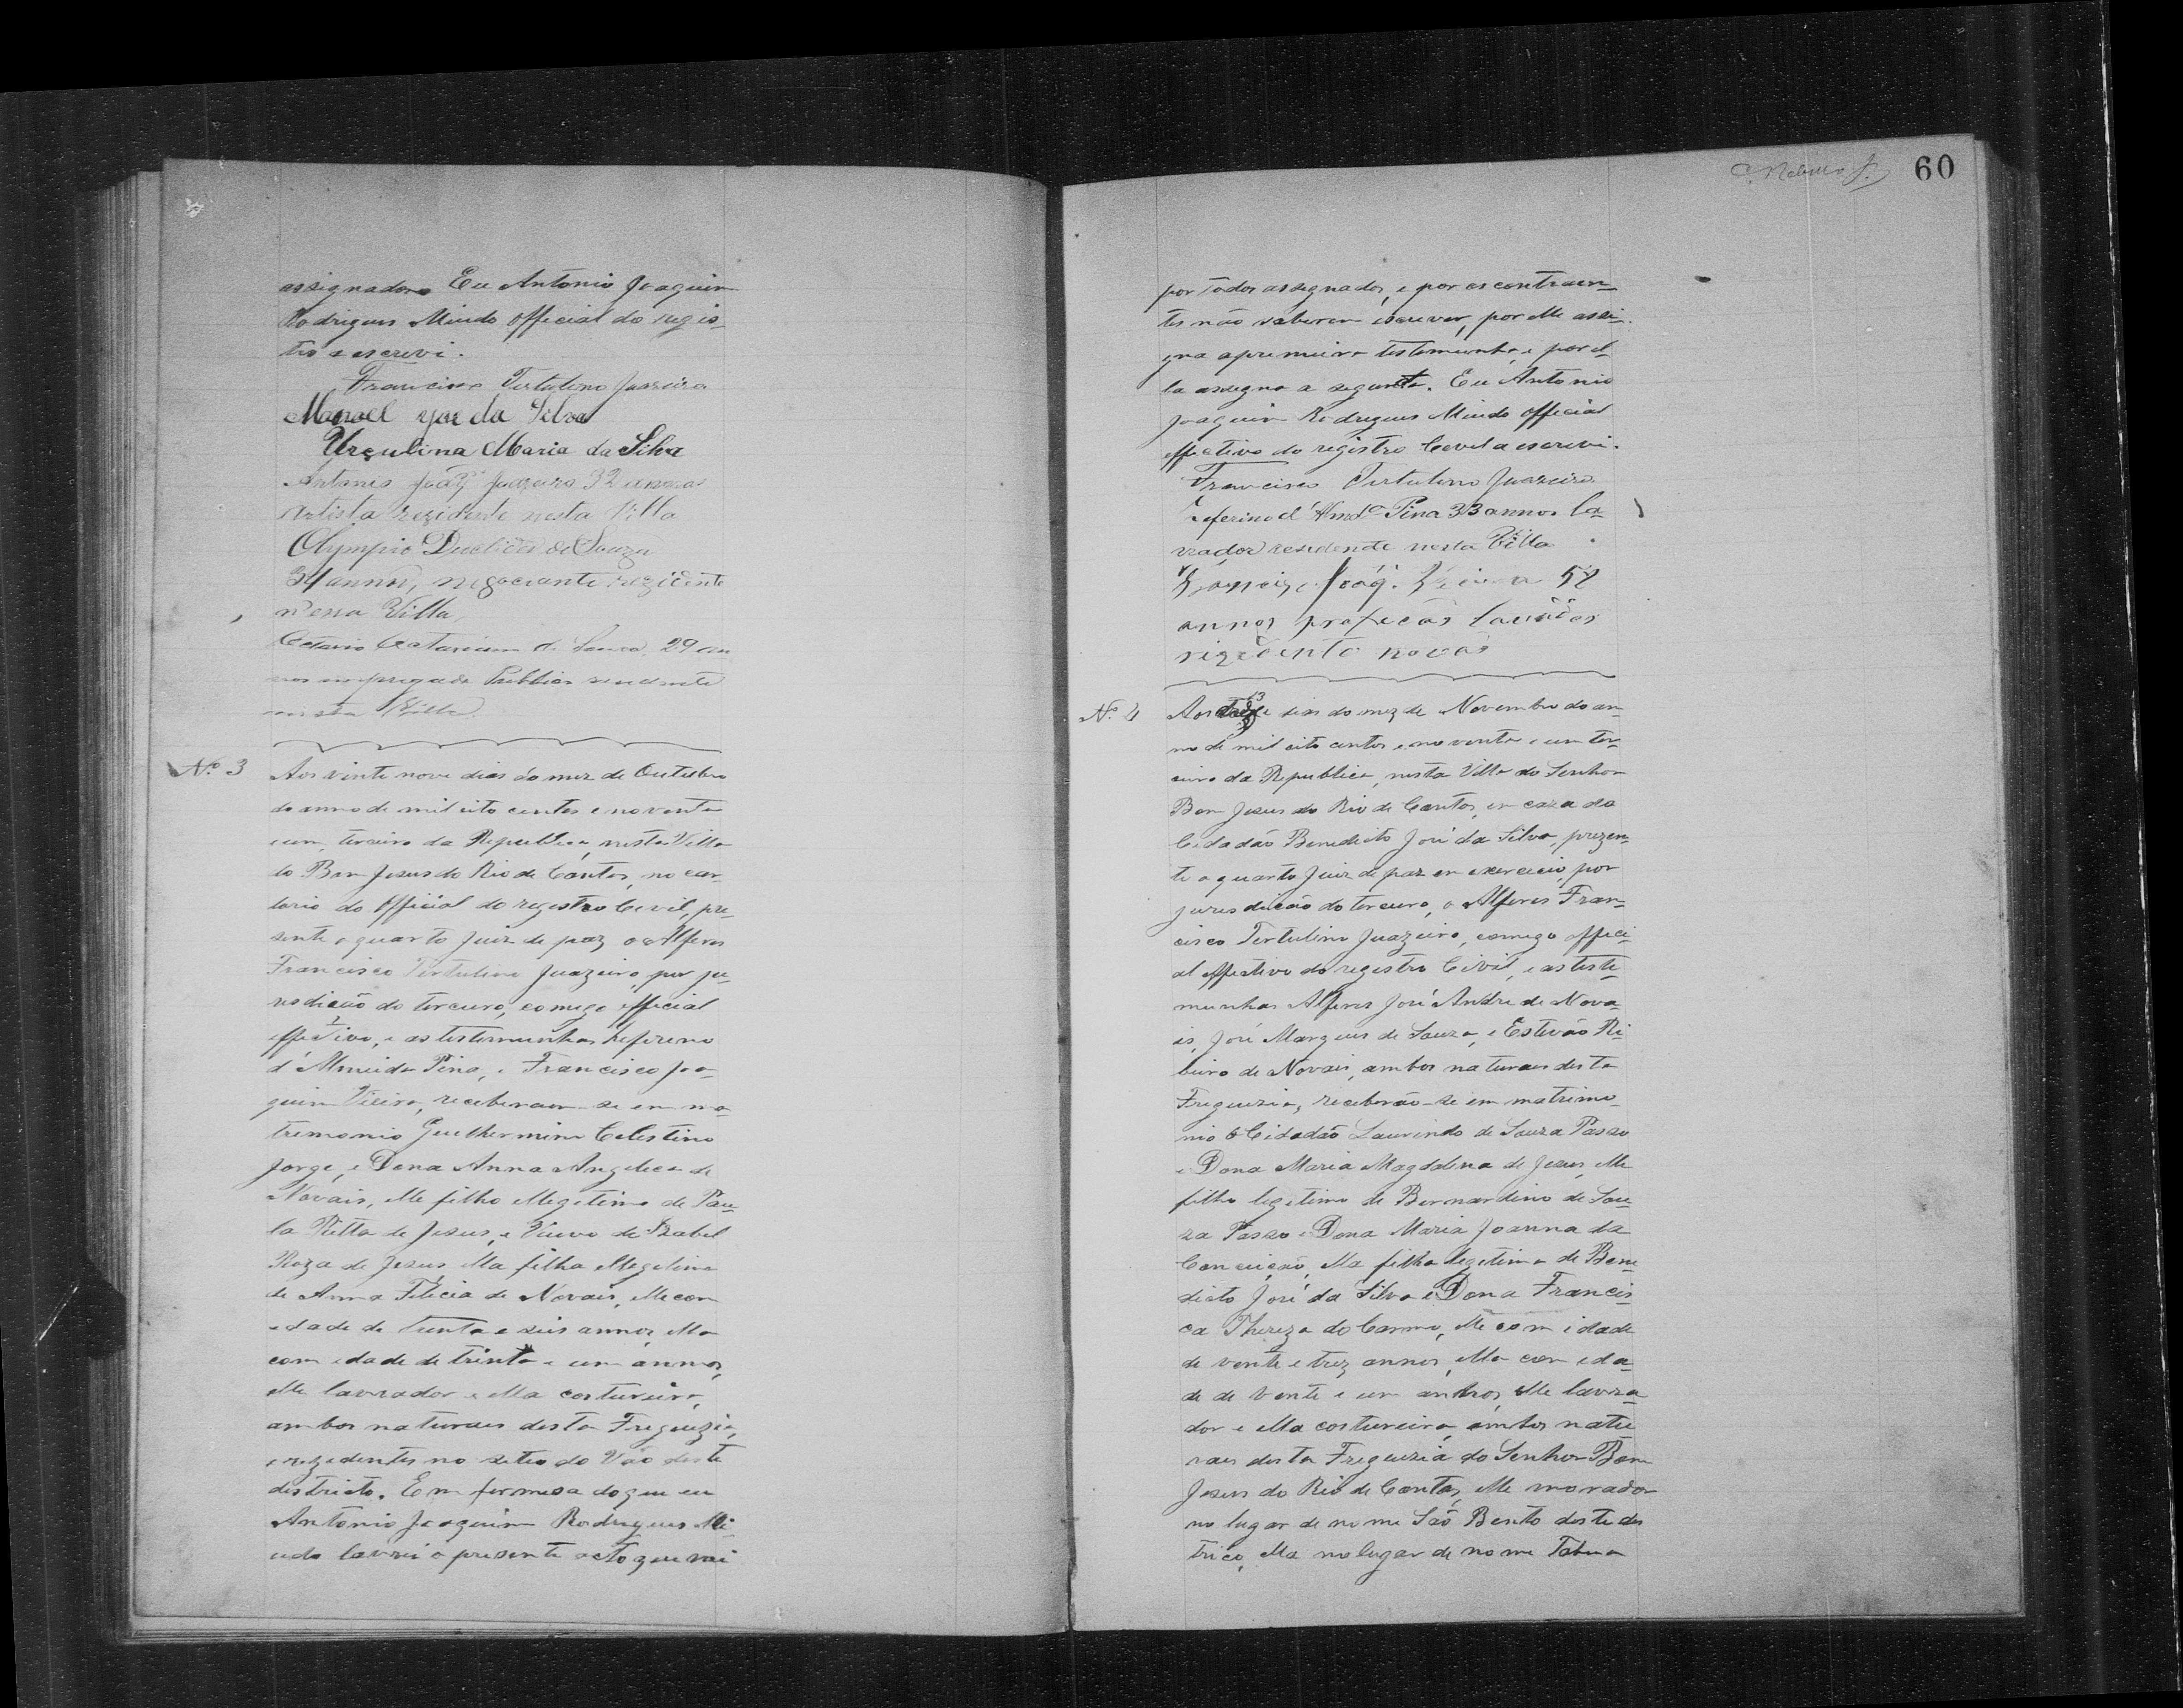 assignados Eu Antonio Joaquim
Rodrigues Miudo Official do regis-
tro a escrevi.
Francisco Tertulino Juazeiro
Manoel da Silva
Urçulina Maria da Silva
Antonio Joaqm Juazeiro 32 annos
Artista rezidente nesta Villa
Olympio Duclides de Souza
34 annos, negociante rezidente
nessa Villa
de Souza, 29 an
nos empregado Publico residente
nesta Villa
Nº 3 Aos vinte nove dias do mez de Outubro
do anno de mil oito centos e noventa
e um, terceiro da Republica, nesta Villa
do Bom Jesus do Rio de Contas, no car-
torio do Official do registro Civil, pre-
sente o quarto Juiz de paz o Alferes
Francisco Tertulino Juazeiro, por ju-
risdicão do terceiro, comigo official
effectivo, e as testemunhas Zeferino
d'Almeida Pina, e Francisco Joa-
quim Vieira, receberam-se em ma
tremonio Guilhermino Celestino
Jorge, e Dona Anna Angelica de
Novais, elle filho ellegetimo de Pau-
la Ritta de Jesus, e Viuvo de Izabel
Roza de Jesus, ella filha ellegetima
de Anna Felicia de Novais, elle com
edade de trenta e seis annos, ella
com edade de trinta e um annos,
elle lavrador e ella costureira,
ambos naturaes desta Freguezia,
e rezedentes no setio do Vão deste
destricto. Em fermesa do que eu
Antonio Joaquim Rodrigues Mi-
udo lavrei o presente acto que vai
60
por todos assegnados, e por os contraen-
tes não saberem escrever, por elle assi-
gna a premeira testemunha, e por el-
la assegna a segunta. Eu Antonio
Joaquim Rodrigues Miudo Official
effectivo do registro Cevel a escrevi.
Francisco Tertulino Juazeiro
Zeferino d'Almda Pina 33 annos la-
vrador residente nesta Villa
Francizco Joaq. Vieira 52
annos profecão
rizidente
Nº 4 Aos treze 13 dias do mez de Novembro do an-
no de mil oito centos e noventa e um ter-
ceiro da Republica, nesta Villa do Senhor
Bom Jesus do Rio de Contas, em caza do
Cidadão Benedicto José da Silva, prezen-
te o quarto Juiz de paz em exercicio, por
juresdicão do terceiro, o Alferes Fran-
cisco Tertulino Juazeiro, comego offici-
al effectivo do registro Civil, e as teste-
munhas Alferes José Andre de Nova-
is, José Marques de Souza, e Estevão Ri-
beiro de Novais, ambos naturaes desta
Freguezia, receberão-se em matrimo-
nio o Cidadão Laurindo de Souza Passo
e Dona Maria Magdalena de Jesus, elle
filho legetimo de Bernardino de Sou-
za Passo e Dona Maria Joanna da
Conceição, ella filha legetima de Bene-
dicto José da Silva e Dona Francis-
ca Thereza do Carmo, elle com idade
de vente e trez annos, ella com eda-
de de vente e um annos, elle lavra-
dor e ella costureira, ambos natu
raes desta Freguezia do Senhor Bom
Jesus do Rio de Contas, elle morador
no lugar de nome São Bento deste des
trico, ella no lugar de nome Tabua